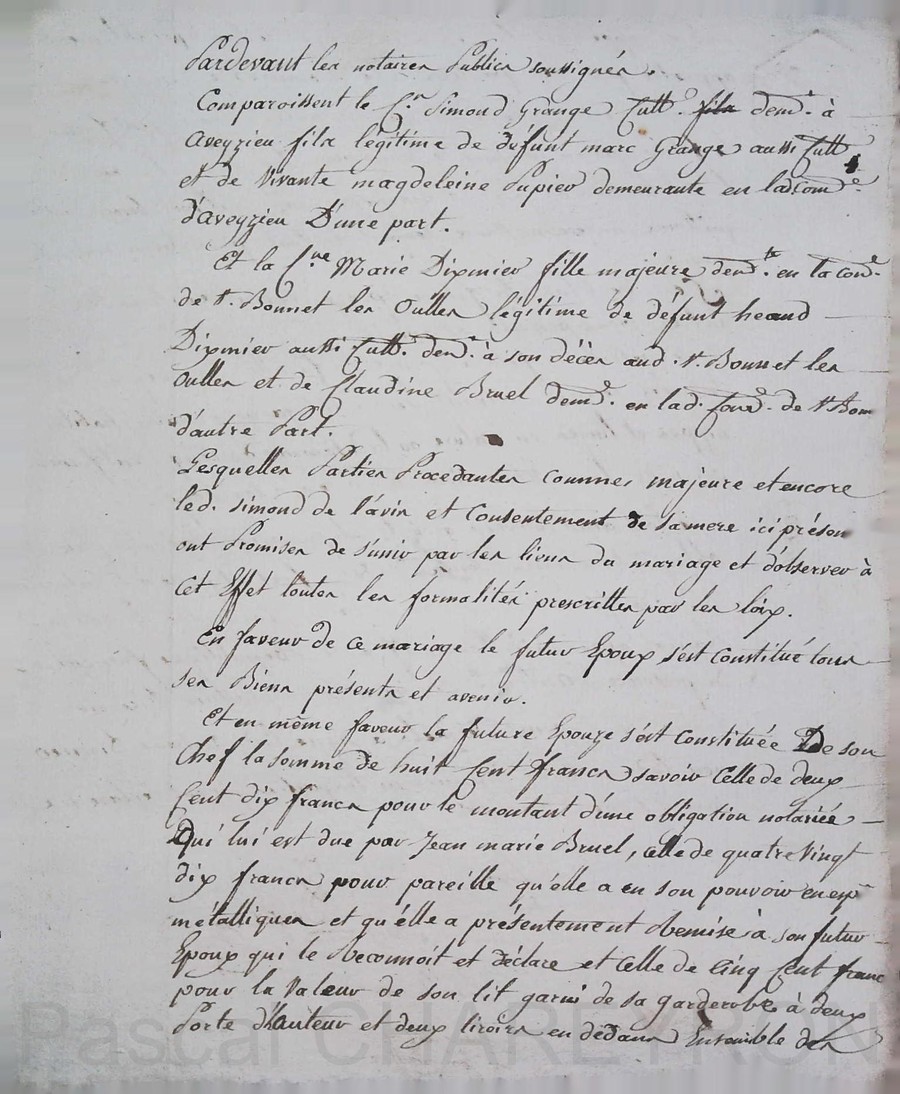 Pardevant les notaires Publics soussignés.
Comparoissent le C.n Simond Grange Cult.r fils dem.t à
aveyzieu fils légitime de défunt marc Grange aussi Cult.r
et de vivante magdeleine Pupier demeurante en lad. com.e
d'aveyzieu D'une part.
Et la C.ne Marie Dixmier fille majeure dem.te en la com.e
de s.t Bonnet les Oulles légitime de défunt
Dixmier aussi Cult.r dem.t à son décès aud. s.t Bonnet les
Oulles et de Claudine Bruel dem.e en lad. com.e de s.t Bon
d'autre Part.
Lesquelles Parties Procedantes Comme majeure et encore
led. simond de l'avis et Consentement de sa mere ici présen
ont Promises de s'unir par les liens du mariage et d'observer à
Cet Effet toutes les formalités prescrittes par les loix.
En faveur de ce mariage le futur Epoux s'est Constitué tous
ses Biens présents et avenir.
Et en même faveur la future Epouze s'est Constituée De son
Chef la somme de huit Cent francs savoir Celle de deux
Cent dix francs pour le montant d'une obligation notariée
Qui lui est due par Jean marie Bruel, Celle de quatre Vingt
dix francs pour pareille qu'elle a en son pouvoir en esp
métalliques et qu'elle a présentement Remise à son futur
Epoux qui le Reconnoit et Déclare et Celle de Cinq Cent franc
pour la Valeur de son lit garni de sa garderobe à deux
Porte d'hauteur et deux tiroirs en dedans Ensemble des
Pascal CHAREYRON